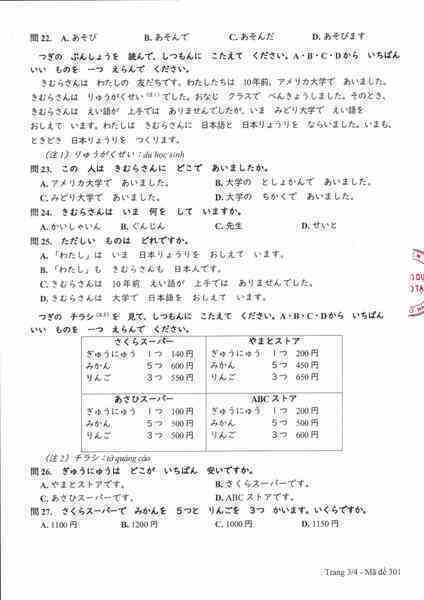 問22. A. あそび B. あそんで C. あそんだ D. あそびます
つぎの ぶんしょうを 読んで、しつもんに こたえて ください。A・B・C・Dから いちばん
いい ものを 一つ えらんで ください。
きむらさんは わたしの 友だちです。わたしたちは 10年前、アメリカ大学で あいました。
きむらさんは りゅうがくせい(注1)でした。おなじ クラスで べんきょうしました。そのとき、
きむらさんは えい語が 上手では ありませんでしたが、いま みどり大学で えい語を
おしえて います。わたしは きむらさんに 日本語と 日本りょうりを ならいました。いまも、
ときどき 日本りょうりを つくります。
(注1) りゅうがくせい : du học sinh
問23. この 人は きむらさんに どこで あいましたか。
A. アメリカ大学で あいました。 B. 大学の としょかんで あいました。
C. みどり大学で あいました。 D. 大学の ちかくで あいました。
問24. きむらさんは いま 何を して いますか。
A. かいしゃいん B. ぐんじん C. 先生 D. せいと
問25. ただしい ものは どれですか。
A. 「わたし」は いま 日本りょうりを おしえて います。
B. 「わたし」も きむらさんも 日本人です。
C. きむらさんは 10年前 えい語が 上手では ありませんでした。
D. きむらさんは 大学で 日本語を おしえて います。
つぎの チラシ(注2)を 見て、しつもんに こたえて ください。A・B・C・Dから いちばん
いい ものを 一つ えらんで ください。
さくらスーパー やまとストア
ぎゅうにゅう 1つ 140円 ぎゅうにゅう 1つ 200円
みかん 5つ 600円 みかん 5つ 450円
りんご 3つ 550円 りんご 3つ 650円
あさひスーパー ABCストア
ぎゅうにゅう 1つ 100円 ぎゅうにゅう 1つ 200円
みかん 5つ 500円 みかん 5つ 500円
りんご 3つ 500円 りんご 3つ 600円
(注2) チラシ : tờ quảng cáo
問26. ぎゅうにゅうは どこが いちばん 安いですか。
A. やまとストアです。 B. さくらスーパーです。
C. あさひスーパーです。 D. ABCストアです。
問27. さくらスーパーで みかんを 5つと りんごを 3つ かいます。いくらですか。
A. 1100円 B. 1200円 C. 1000円 D. 1150円
Trang 3/4 - Mã đề 301